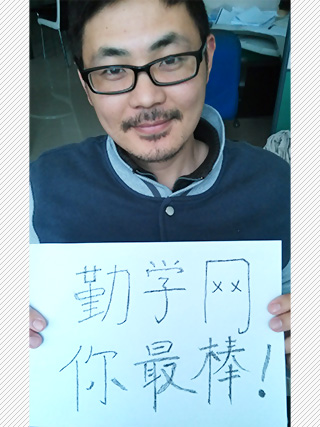 勤学网
你最棒!